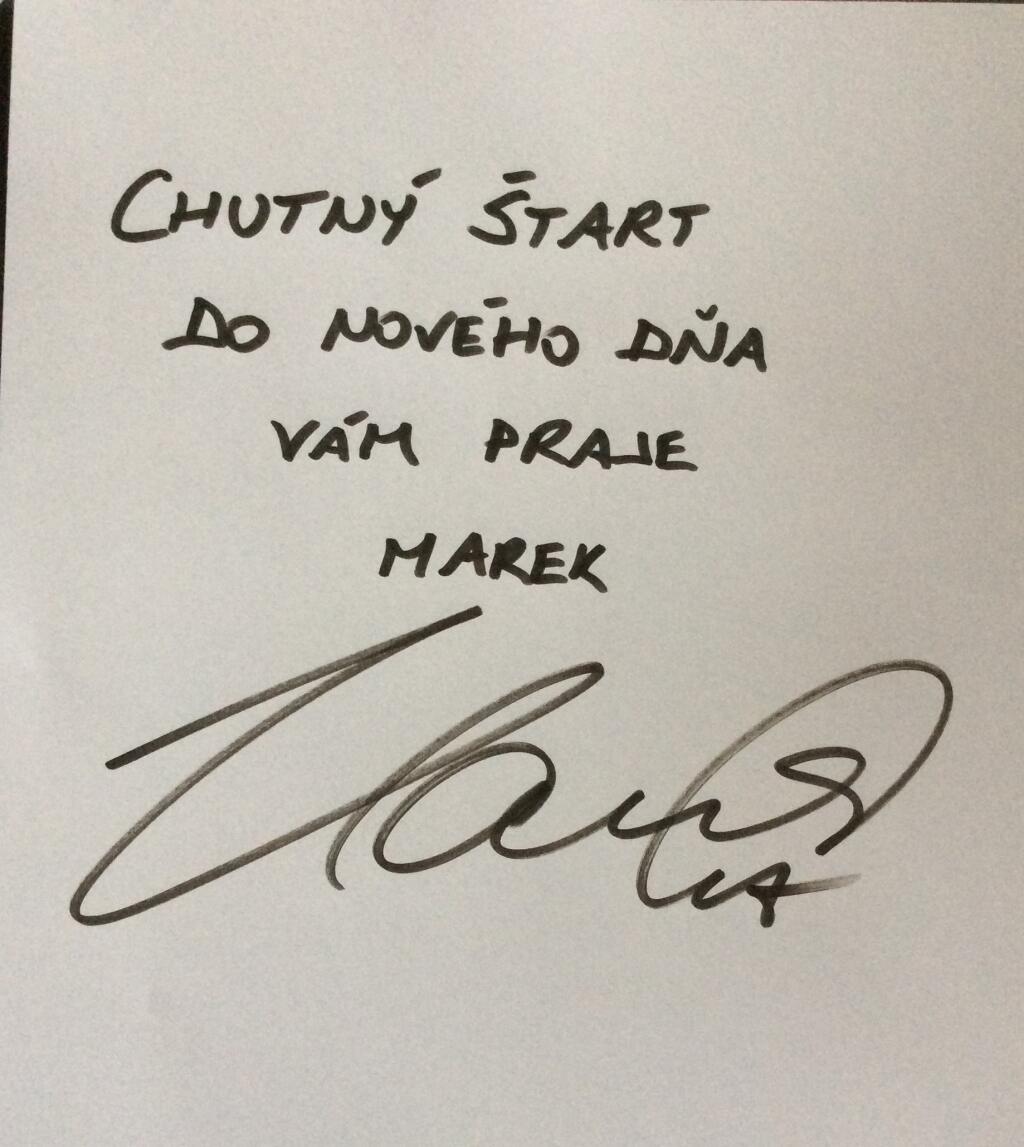 CHUTNÝ ŠTART
DO NOVÉHO DŇA
VÁM PRAJE
MAREK